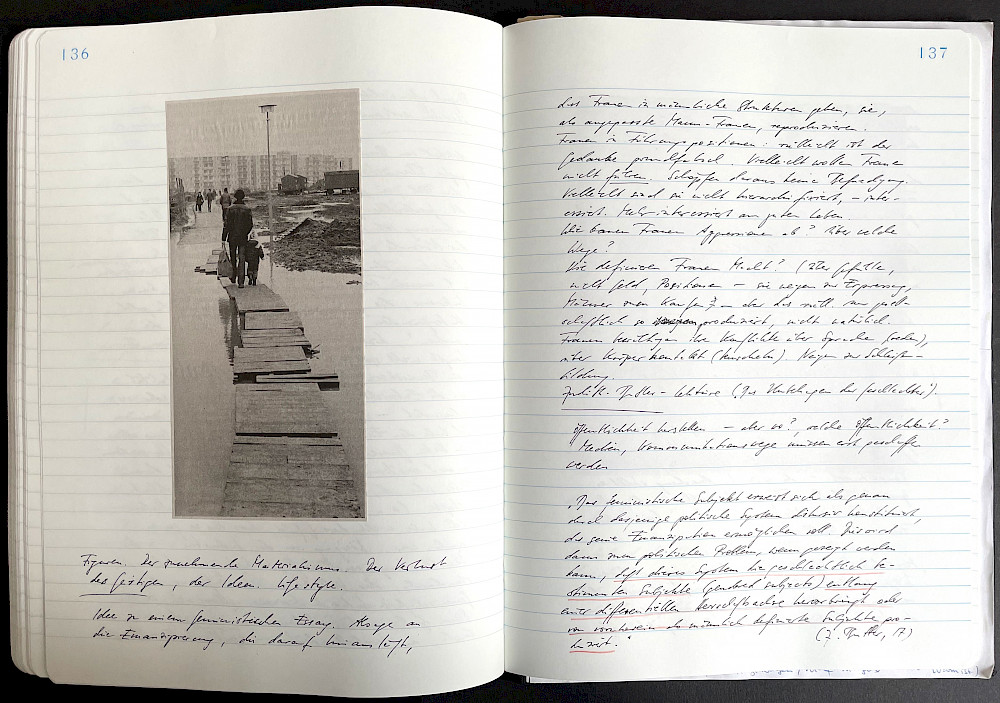 136
Figuren. Der zunehmende Materialismus. Der Verlust
des Geistigen, der Ideen. Lifestyle.
Idee zu einem feministischen Essay. Absage an
die Emanzipierung, die darauf hinausläuft,
137
daß Frauen in männliche Strukturen gehen, sie,
als angepasste Mann-Frauen, reproduzieren.
Frauen in Führungspositionen: vielleicht ist der
Gedanke grundfalsch. Vielleicht wollen Frauen
nicht führen. Schöpfen daraus keine Befriedigung.
Vielleicht sind sie nicht hierarchisiert, – inter-
essiert. Mehr interessiert am guten Leben.
Wie bauen Frauen Aggressionen ab? Über welche
Wege?
Wie definieren Frauen Macht? (über Gefühle,
nicht Geld, Positionen – sie neigen zur Erpressung,
Männer zum Kampf? – aber das nur
schaftlich so produziert, nicht natürlich.
Frauen ihre Konflikte über Sprache (reden),
über Körperkontakt (kuscheln). Neigen zur
bildung.
Judith-Butler-Lektüre (Das Unbehagen der Geschlechter).
Öffentlichkeit herstellen – aber wo?, welche Öffentlichkeit?
Medien, Kommunikationswege müssen erst geschaffen
werden
„Das feministische Subjekt erweist sich als genau
durch dasjenige politische System diskursiv konstituiert,
das seine Emanzipation ermöglichen soll. Dies wird
dann zum politischen Problem, wenn gezeigt werden
kann, daß dieses System die geschlechtlich be-
stimmten Subjekte (gendered subjects) entlang
einer differentiellen Herrschaftsachse hervorbringt oder
von vornherein als männlich definierte Subjekte pro-
duziert."
(J. Butler, 17)